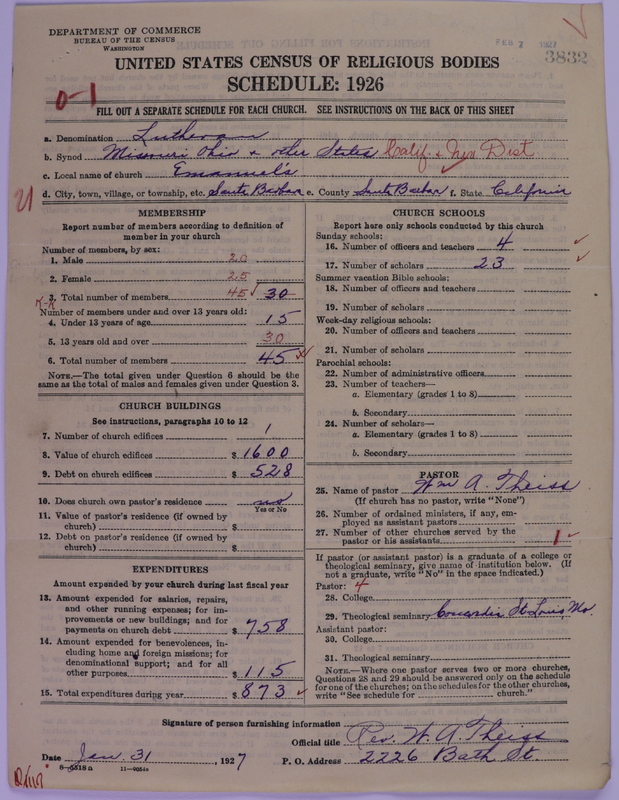 DEPARTMENT OF COMMERCE
BUREAU OF THE CENSUS
WASHINGTON
FEB 2 1927
3832
UNITED STATES CENSUS OF RELIGIOUS BODIES
SCHEDULE: 1926
0-1
FILL OUT A SEPARATE SCHEDULE FOR EACH CHURCH. SEE INSTRUCTIONS ON THE BACK OF THIS SHEET
a. Denomination Lutheran
b. Synod Missouri Ohio & other States Calif. & Nev Dist
c. Local name of church Emanuel's
d. City, town, village, or township, etc. Santa Barbara e. County Santa Barbara f. State California
21
MEMBERSHIP
Report number of members according to definition of
member in your church
Number of members, by sex:
1. Male 20
2. Female 25
3. Total number of members 45 30
Number of members under and over 13 years old:
4. Under 13 years of age 15
5. 13 years old and over 30
6. Total number of members 45
NOTE.—The total given under Question 6 should be
same as the total of males and females given under Question 3.
CHURCH BUILDINGS
See instructions, paragraphs 10 to 12
7. Number of church edifices 1
8. Value of church edifices $ 1600
9. Debt on church edifices $ 528
10. Does church own pastor's residence no
Yes or No
11. Value of pastor's residence (if owned by
church) $
12. Debt on pastor's residence (if owned by
church) $
EXPENDITURES
Amount expended by your church during last fiscal year
13. Amount expended for salaries, repairs,
and other running expenses; for im-
provements or new buildings; and for
payments on church debt $ 758
14. Amount expended for benevolences, in-
cluding home and foreign missions; for
denominational support; and for all
other purposes $ 115
15. Total expenditures during year $ 873
CHURCH SCHOOLS
Report here only schools conducted by this church
Sunday schools:
16. Number of officers and teachers 4
17. Number of scholars 23
Summer vacation Bible schools:
18. Number of officers and teachers
19. Number of scholars
Week-day religious schools:
20. Number of officers and teachers
21. Number of scholars
Parochial schools:
22. Number of administrative officers
23. Number of teachers—
a. Elementary (grades 1 to 8)
b. Secondary
24. Number of scholars—
a. Elementary (grades 1 to 8)
b. Secondary
PASTOR
25. Name of pastor Wm A. Theiss
(If church has no pastor, write "None")
26. Number of ordained ministers, if any, em-
ployed as assistant pastors
27. Number of other churches served by the
pastor or his assistants 1
If pastor (or assistant pastor) is a graduate of a college or
theological seminary, give name of institution below. (If
not a graduate, write "No" in the space indicated.)
Pastor: 4
28. College
29. Theological seminary Concordia St Louis, Mo.
Assistant pastor:
30. College
31. Theological seminary
NOTE.—Where one pastor serves two or more churches,
Questions 28 and 29 should be answered only on the schedule
for one of the churches; on the schedules for the other churches,
write "See schedule for church."
Signature of person furnishing information
Official title Rev. W. A. Theiss
Date Jan. 31, 1927 P. O. Address 2226 Bath St.
8-5518a 11-9054a